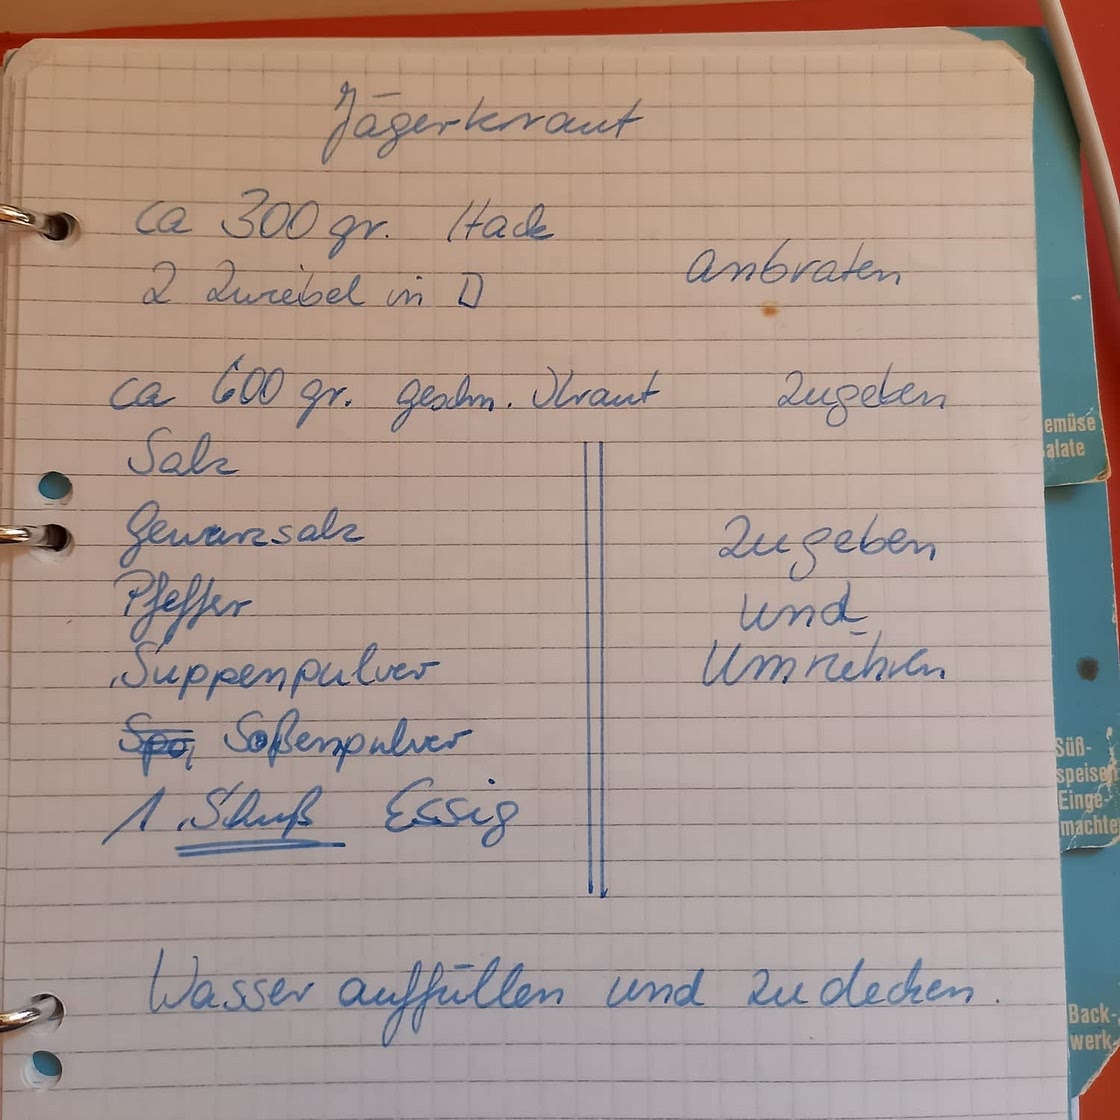 Jägerkraut
ca 300 gr. Hack
anbraten
2 Zwiebel in
ca 600 gr. geschn. Kraut zugeben
Salz
Gewürzsalz
Pfeffer
Suppenpulver
Soßenpulver
1 Schuß Essig
Zugeben
und
Umrühren
Wasser auffüllen und zudecken.
emüse
alate
Süß-
speisen
Einge-
machte
Back-
werk